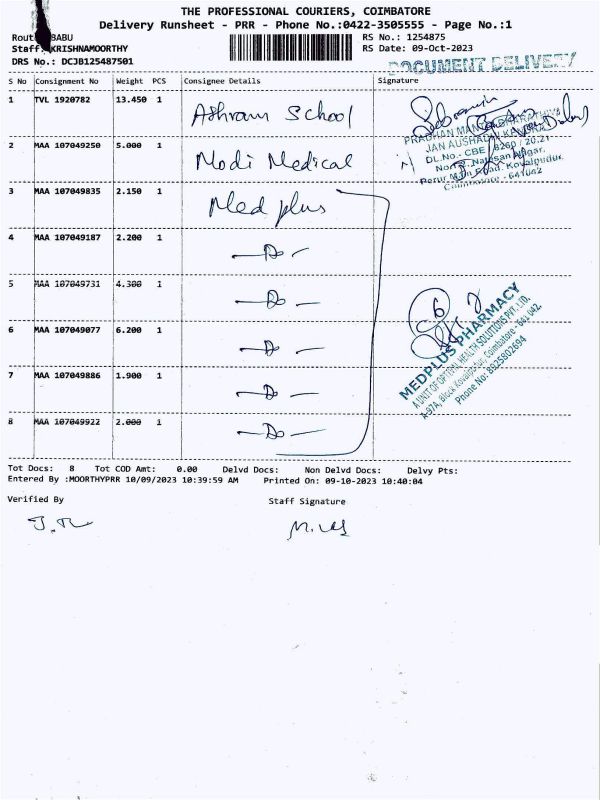 THE PROFESSIONAL COURIERS, COIMBATORE
Delivery Runsheet - PRR - Phone No.:0422-3505555 - Page No.:1
Rout BABU
RS No.: 1254875
Staff: KRISHNAMOORTHY
RS Date: 09-Oct-2023
DRS No.: DCJB125487501
DOCUMENT DELIVERY
S No Consignment No Weight PCS Consignee Details Signature
1 TVL 1920782 13.450 1 Ashram School
2 MAA 107049250 5.000 1 Modi Medical
PRADHAN MANTRI BHARATHIYA
JAN AUSHADHI KENDRA
DL.No.- CBE / 8260 / 20.21
Natesan Nagar,
Perur Main Road, Kovaipudur,
Coimbatore - 641042
3 MAA 107049835 2.150 1 Med plus
4 MAA 107049187 2.200 1 — Do —
5 MAA 107049731 4.300 1 — Do —
6 MAA 107049077 6.200 1 — Do —
7 MAA 107049886 1.900 1 — Do —
8 MAA 107049922 2.000 1 — Do —
6
MEDPLUS PHARMACY
A UNIT OF OPTIVAL HEALTH SOLUTIONS PVT. LTD.
A-97A, Block Kovaipudur, Coimbatore - 641 042.
Phone No: 8925802694
Tot Docs: 8 Tot COD Amt: 0.00 Delvd Docs: Non Delvd Docs: Delvy Pts:
Entered By :MOORTHYPRR 10/09/2023 10:39:59 AM Printed On: 09-10-2023 10:40:04
Verified By Staff Signature